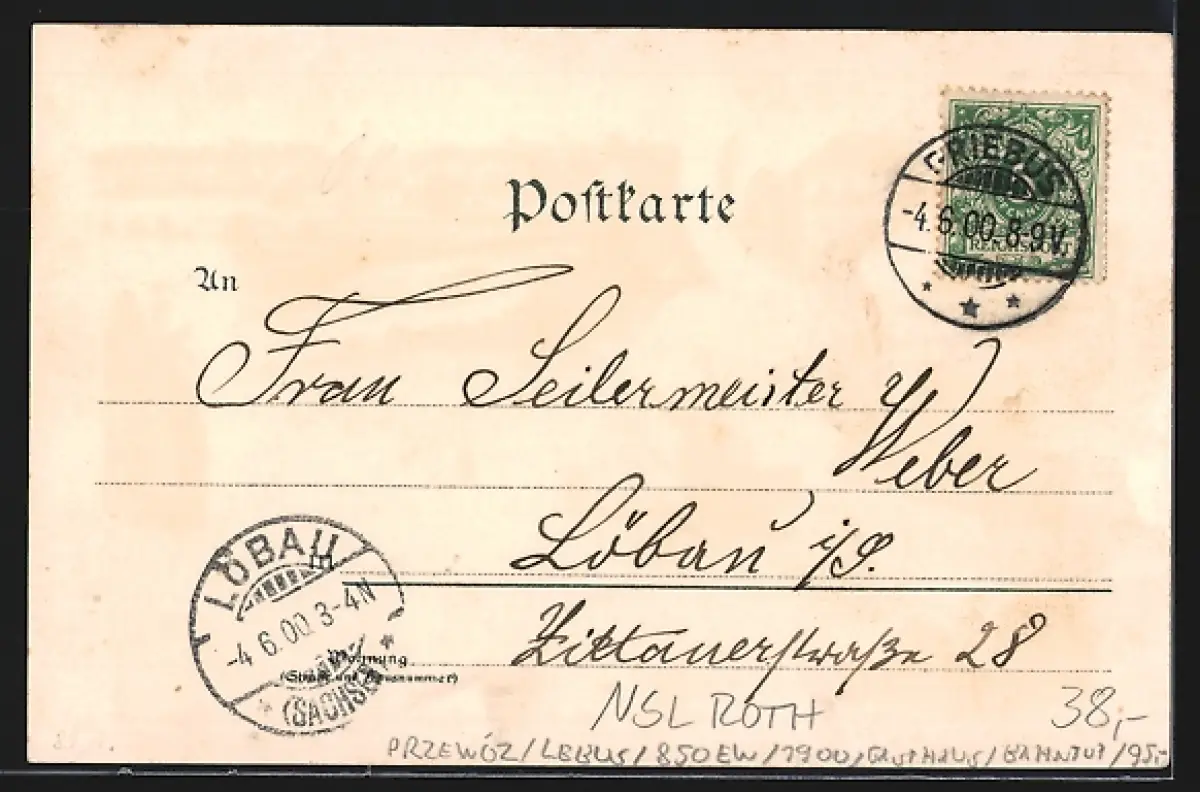 Postkarte
PRIEBUS
-4.6.00.8-9V.
REICHSPOST
An
Frau Seilermeister
Weber
Löbau i/S.
in
LÖBAU
-4.6.00.3-4N
(SACHSEN)
Wohnung
(Straße und Hausnummer)
Zittauerstraße 28
NSL ROTH 38,-
PRZEWÓZ / LEBUS / 850 EW / 1900, GASTHAUS / /95,-